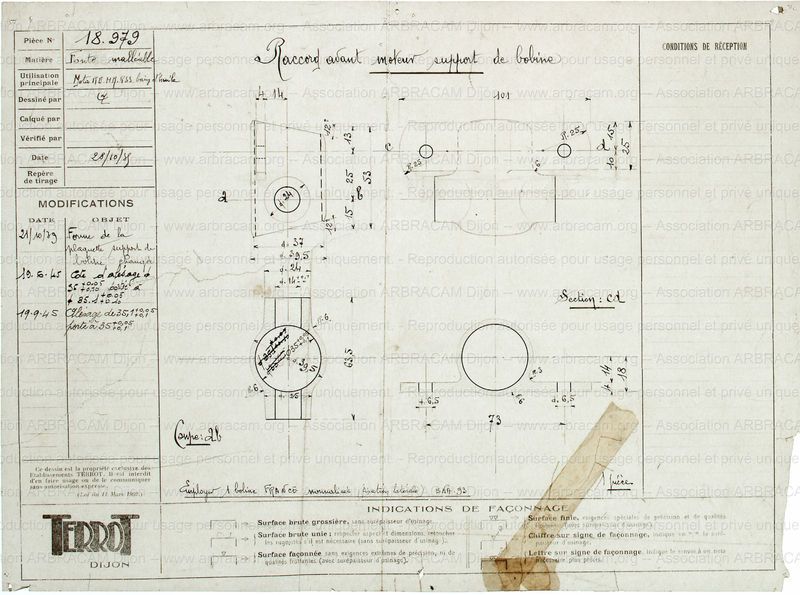 Pièce N° 18.979
Matière Fonte malléable
Utilisation principale
Dessiné par
Calqué par
Vérifié par
Date 28/10/35
Repère de tirage
MODIFICATIONS
DATE OBJET
21/10/39 Forme de la
plaquette support de
bobine changée
19.6.45 Cote d'alésage d
19-9-45 Alésage de 35,1
porté à 35
Ce dessin est la propriété exclusive des
Etablissements TERROT. Il est interdit
d'en faire usage ou de le communiquer
sans autorisation expresse.
(Loi du 11 Mars 1902.)
TERROT
DIJON
Raccord avant moteur support de bobine
CONDITIONS DE RÉCEPTION
4 14
12°
13
25
53
15
12°
a
b
d. 24
d. 37
d. 39,5
d. 24
d. 14
101
R. 25
15
25
10
c
d
R. 25
6
Section: cd
R. 6
63,5
d. 39,5
R. 6
35
Coupe: ab
R. 3
14
18
d. 6,5
d. 6,5
73
Employer 1 bobine FRANCE normalisée
1 pièce
INDICATIONS DE FAÇONNAGE
Surface brute grossière, sans surépaisseur d'usinage.
Surface brute unie; respecter aspect et dimensions, retoucher
les rugosités s'il est nécessaire (sans surépaisseur d'usinage).
Surface façonnée sans exigences extrêmes de précision, ni de
qualités frottantes (avec surépaisseur d'usinage).
Surface finie, exigences spéciales de précision et de qualités
(avec surépaisseur d'usinage).
Chiffre sur signe de façonnage, indique en
Lettre sur signe de façonnage, indique le renvoi à un nota
Association ARBRACAM Dijon - www.arbracam.org - Reproduction autorisée pour usage personnel et privé uniquement.